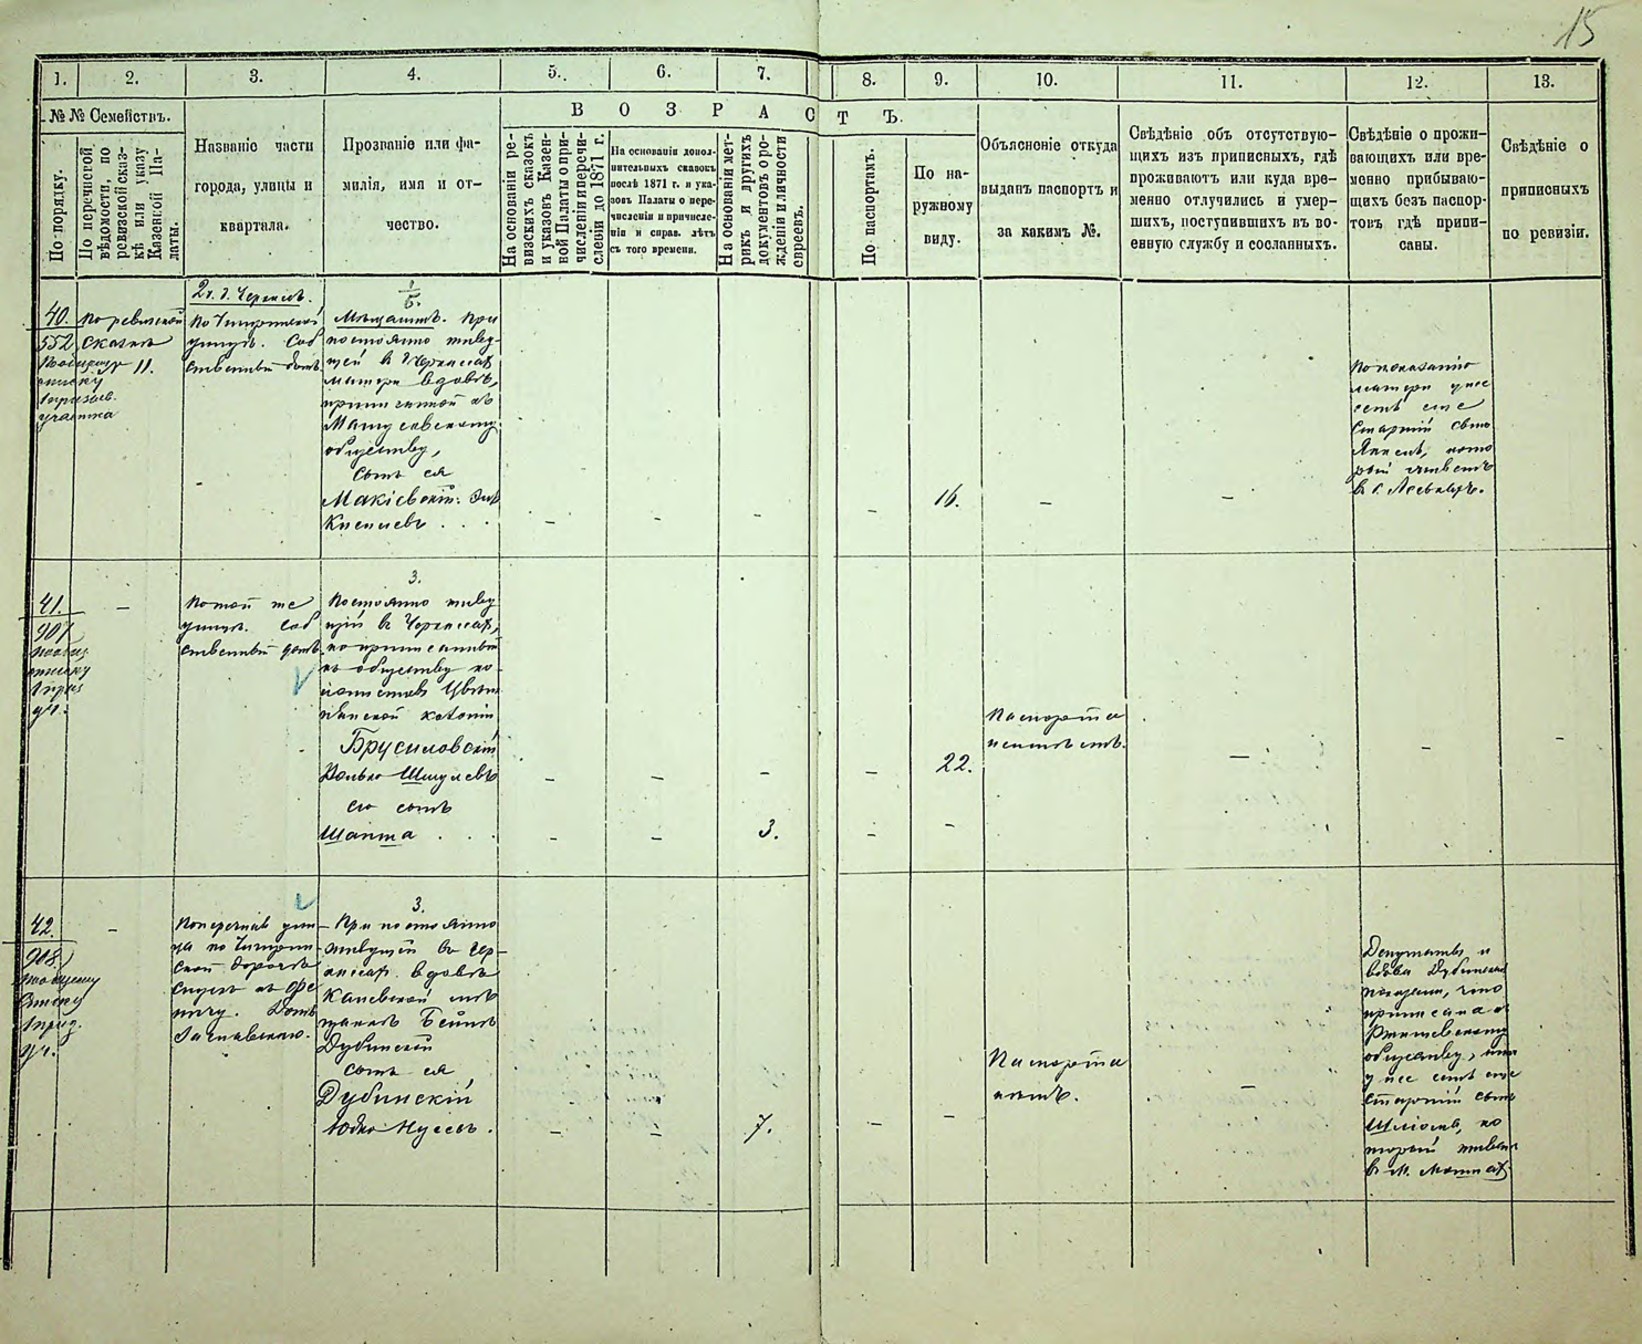 15
1. 2. 3. 4. 5. 6. 7. 8. 9. 10. 11. 12. 13.
№ № Семействъ.
По поряку.
По перечневой
вѣдомости, по
ревизской сказ-
кѣ или указу
Казенной Па-
латы.
Названіе части
города, улицы и
квартала.
Прозваніе или фа-
милія, имя и от-
чество.
ВОЗРАСТЪ.
На основаніи ре-
визскихъ сказокъ
и указовъ Казен-
ной Палаты о при-
численіи и перечи-
сленіи до 1871 г.
На основаніи допол-
нительныхъ сказокъ
послѣ 1871 г. и ука-
зовъ Палаты о пере-
численіи и причисле-
ніи и справ. лѣтъ
съ того времени.
На основаніи мет-
рикъ и другихъ
документовъ о ро-
жденіи и личности
евреевъ.
По паспортамъ.
По на-
ружному
виду.
Объясненіе откуда
выданъ паспортъ и
за какимъ №.
Свѣдѣніе объ отсутствую-
щихъ изъ приписныхъ, гдѣ
проживаютъ или куда вре-
менно отлучились и умер-
шихъ, поступившихъ въ во-
енную службу и сосланныхъ.
Свѣдѣніе о прожи-
вающихъ или вре-
менно прибываю-
щихъ безъ паспор-
товъ гдѣ припи-
саны.
Свѣдѣніе о
приписныхъ
по ревизіи.
40.
552
по общему
списку
призыв.
участка
По ревизской
сказкѣ
11.
2 ч. г. Черкасъ.
По Чигиринской
улицѣ. Соб
ственный домъ
1/5.
Мѣщанинъ. При
постоянно живу-
щей въ Черкассахъ
матери вдовѣ,
приписанной къ
обществу,
сынъ ея
Макіевскій
16.
По показанію
матери у нее
есть еще
старшій сынъ
который живетъ
41.
907
по общ.
списку
1 приз
уч.
По той же
улицѣ. Соб
ственный домъ
3.
Постоянно живу
щій въ Черкассахъ,
но приписанный
къ обществу ко-
лонистовъ
колоніи
Брусиловскій
Шмулевъ
его сынъ
Шапта
3.
22.
Паспорта
неимѣетъ.
42.
908.
по общему
списку
1 приз.
уч.
Поперечная ули-
ца по Чигирин-
ской дорогѣ
Домъ
3.
При постоянно
живущей въ Чер-
кассахъ вдовѣ
Каневской мѣ-
щанкѣ
Дубинской
сынъ ея
Дубинскій
7.
Паспорта
нѣтъ.
Депутатъ и
вдова Дубинская
показали, что
приписана къ
обществу, и что
у нее есть еще
старшій сынъ
ко
торый живетъ
въ м.